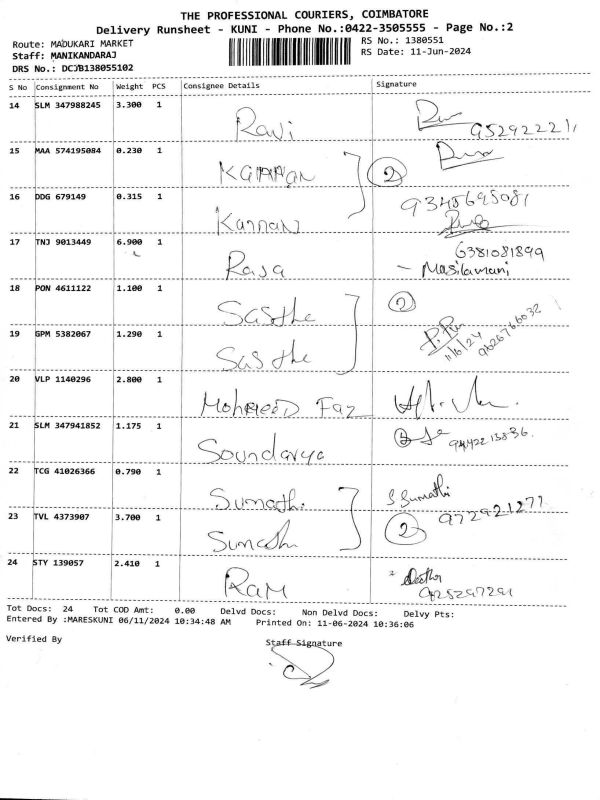 THE PROFESSIONAL COURIERS, COIMBATORE
Delivery Runsheet - KUNI - Phone No.:0422-3505555 - Page No.:2
Route: MADUKARI MARKET
RS No.: 1380551
Staff: MANIKANDARAJ
RS Date: 11-Jun-2024
DRS No.: DCJB138055102
S No Consignment No Weight PCS Consignee Details Signature
14 SLM 347988245 3.300 1 Ravi
952922211
15 MAA 574195084 0.230 1 Kannan 2
16 DDG 679149 0.315 1 Kannan 9345695081
17 TNJ 9013449 6.900 1 Raja 6381081899
- Masilamani
18 PON 4611122 1.100 1 Sasthe 2
19 GPM 5382067 1.290 1 Sasthe 11/6/24
20 VLP 1140296 2.800 1 Mohameed Faz
21 SLM 347941852 1.175 1 Soundarya
22 TCG 41026366 0.790 1 Sumathi S Sumathi
23 TVL 4373907 3.700 1 Sumathi 2
24 STY 139057 2.410 1 Ram
Tot Docs: 24 Tot COD Amt: 0.00 Delvd Docs: Non Delvd Docs: Delvy Pts:
Entered By :MARESKUNI 06/11/2024 10:34:48 AM Printed On: 11-06-2024 10:36:06
Verified By
Staff Signature